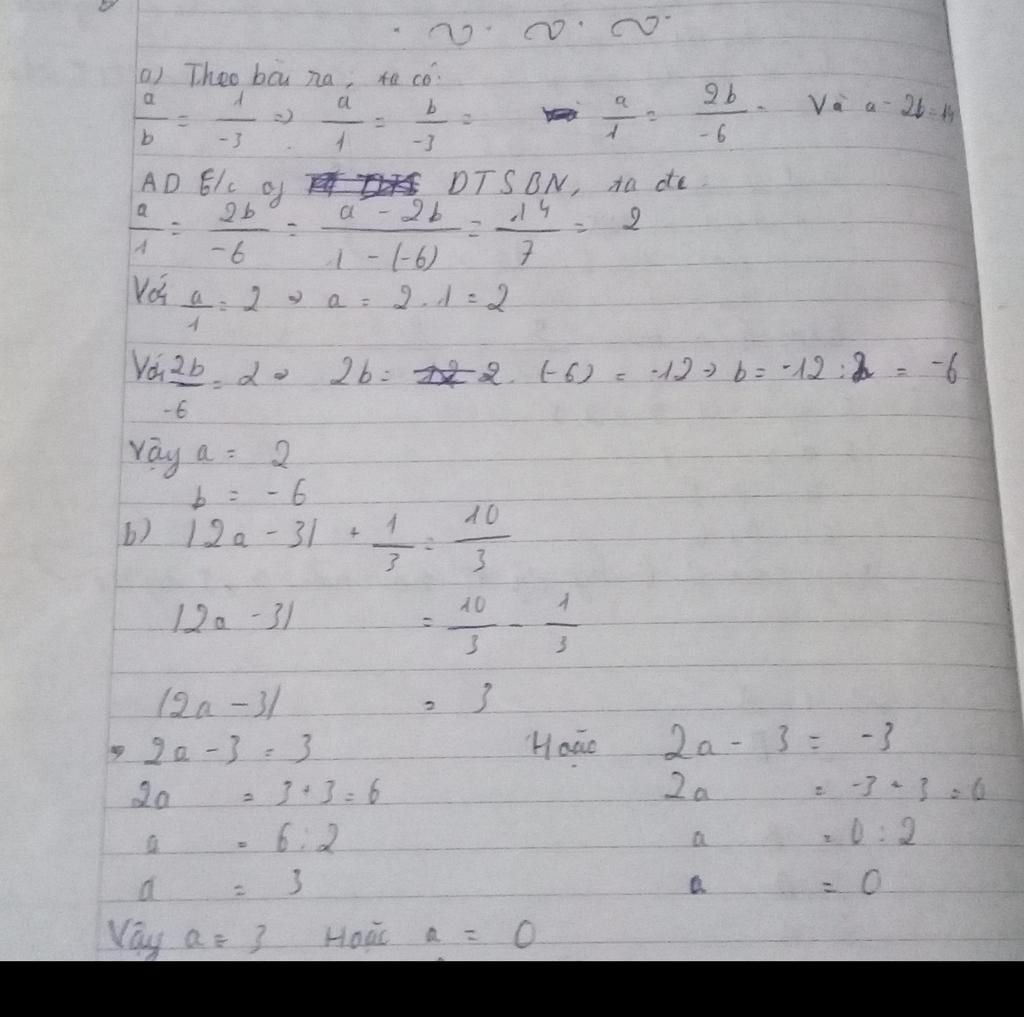 a) Theo bài ra, ta có:
a/b = 1/-3 => a/1 = b/-3 = a/1 = 2b/-6 Và a - 2b = 14
AD t/c of DTSBN, ta đc
a/1 = 2b/-6 = a - 2b/1 - (-6) = 14/7 = 2
Với a/1 = 2 => a = 2.1 = 2
Với 2b/-6 = 2 => 2b = 2. (-6) = -12 => b = -12 : 2 = -6
Vậy a = 2
b = -6
b) |2a - 3| + 1/3 = 10/3
|2a - 3| = 10/3 - 1/3
|2a - 3| = 3
=> 2a - 3 = 3 Hoặc 2a - 3 = -3
2a = 3 + 3 = 6 2a = -3 + 3 = 0
a = 6 : 2 a = 0 : 2
a = 3 a = 0
Vậy a = 3 Hoặc a = 0